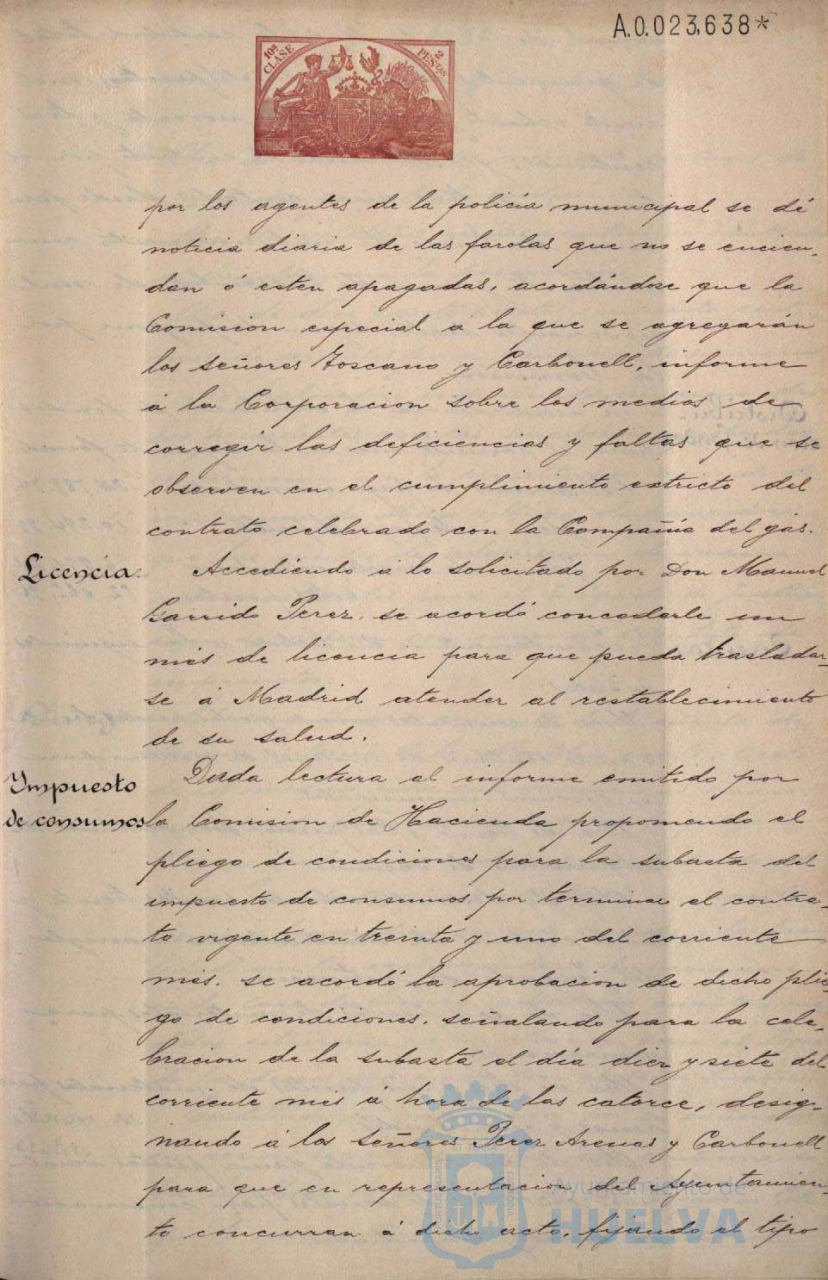 A.0.023,638*
10ª CLASE
2 PESETAS
por los agentes de la policía municipal se dé
noticia diaria de las farolas que no se encien-
dan ó esten apagadas, acordándose que la
Comision especial á la que se agregarán
los señores Toscano y Carbonell, informe
á la Corporacion sobre los medios de
corregir las deficiencias y faltas que se
observen en el cumplimiento extricto del
contrato celebrado con la Compañia del gas.
Licencia.
Accediendo á lo solicitado por Don Manuel
Garrido Perez, se acordó concederle un
més de licencia para que pueda trasladar-
se á Madrid atender al restablecimiento
de su salud.
Impuesto
de consumos
Dada lectura el informe emitido por
la Comision de Hacienda proponiendo el
pliego de condiciones para la subasta del
impuesto de consumos por terminar el contra-
to vigente en treinta y uno del corriente
més, se acordó la aprobacion de dicho plie-
go de condiciones, señalando para la cele-
bracion de la subasta el día diez y siete del
corriente més á hora de las catorce, desig-
nando á los señores Perez Arenas y Carbonell
para que en representacion del Ayuntamien-
to concurran á dicho acto, fijando el tipo
Ayuntamiento de
HUELVA